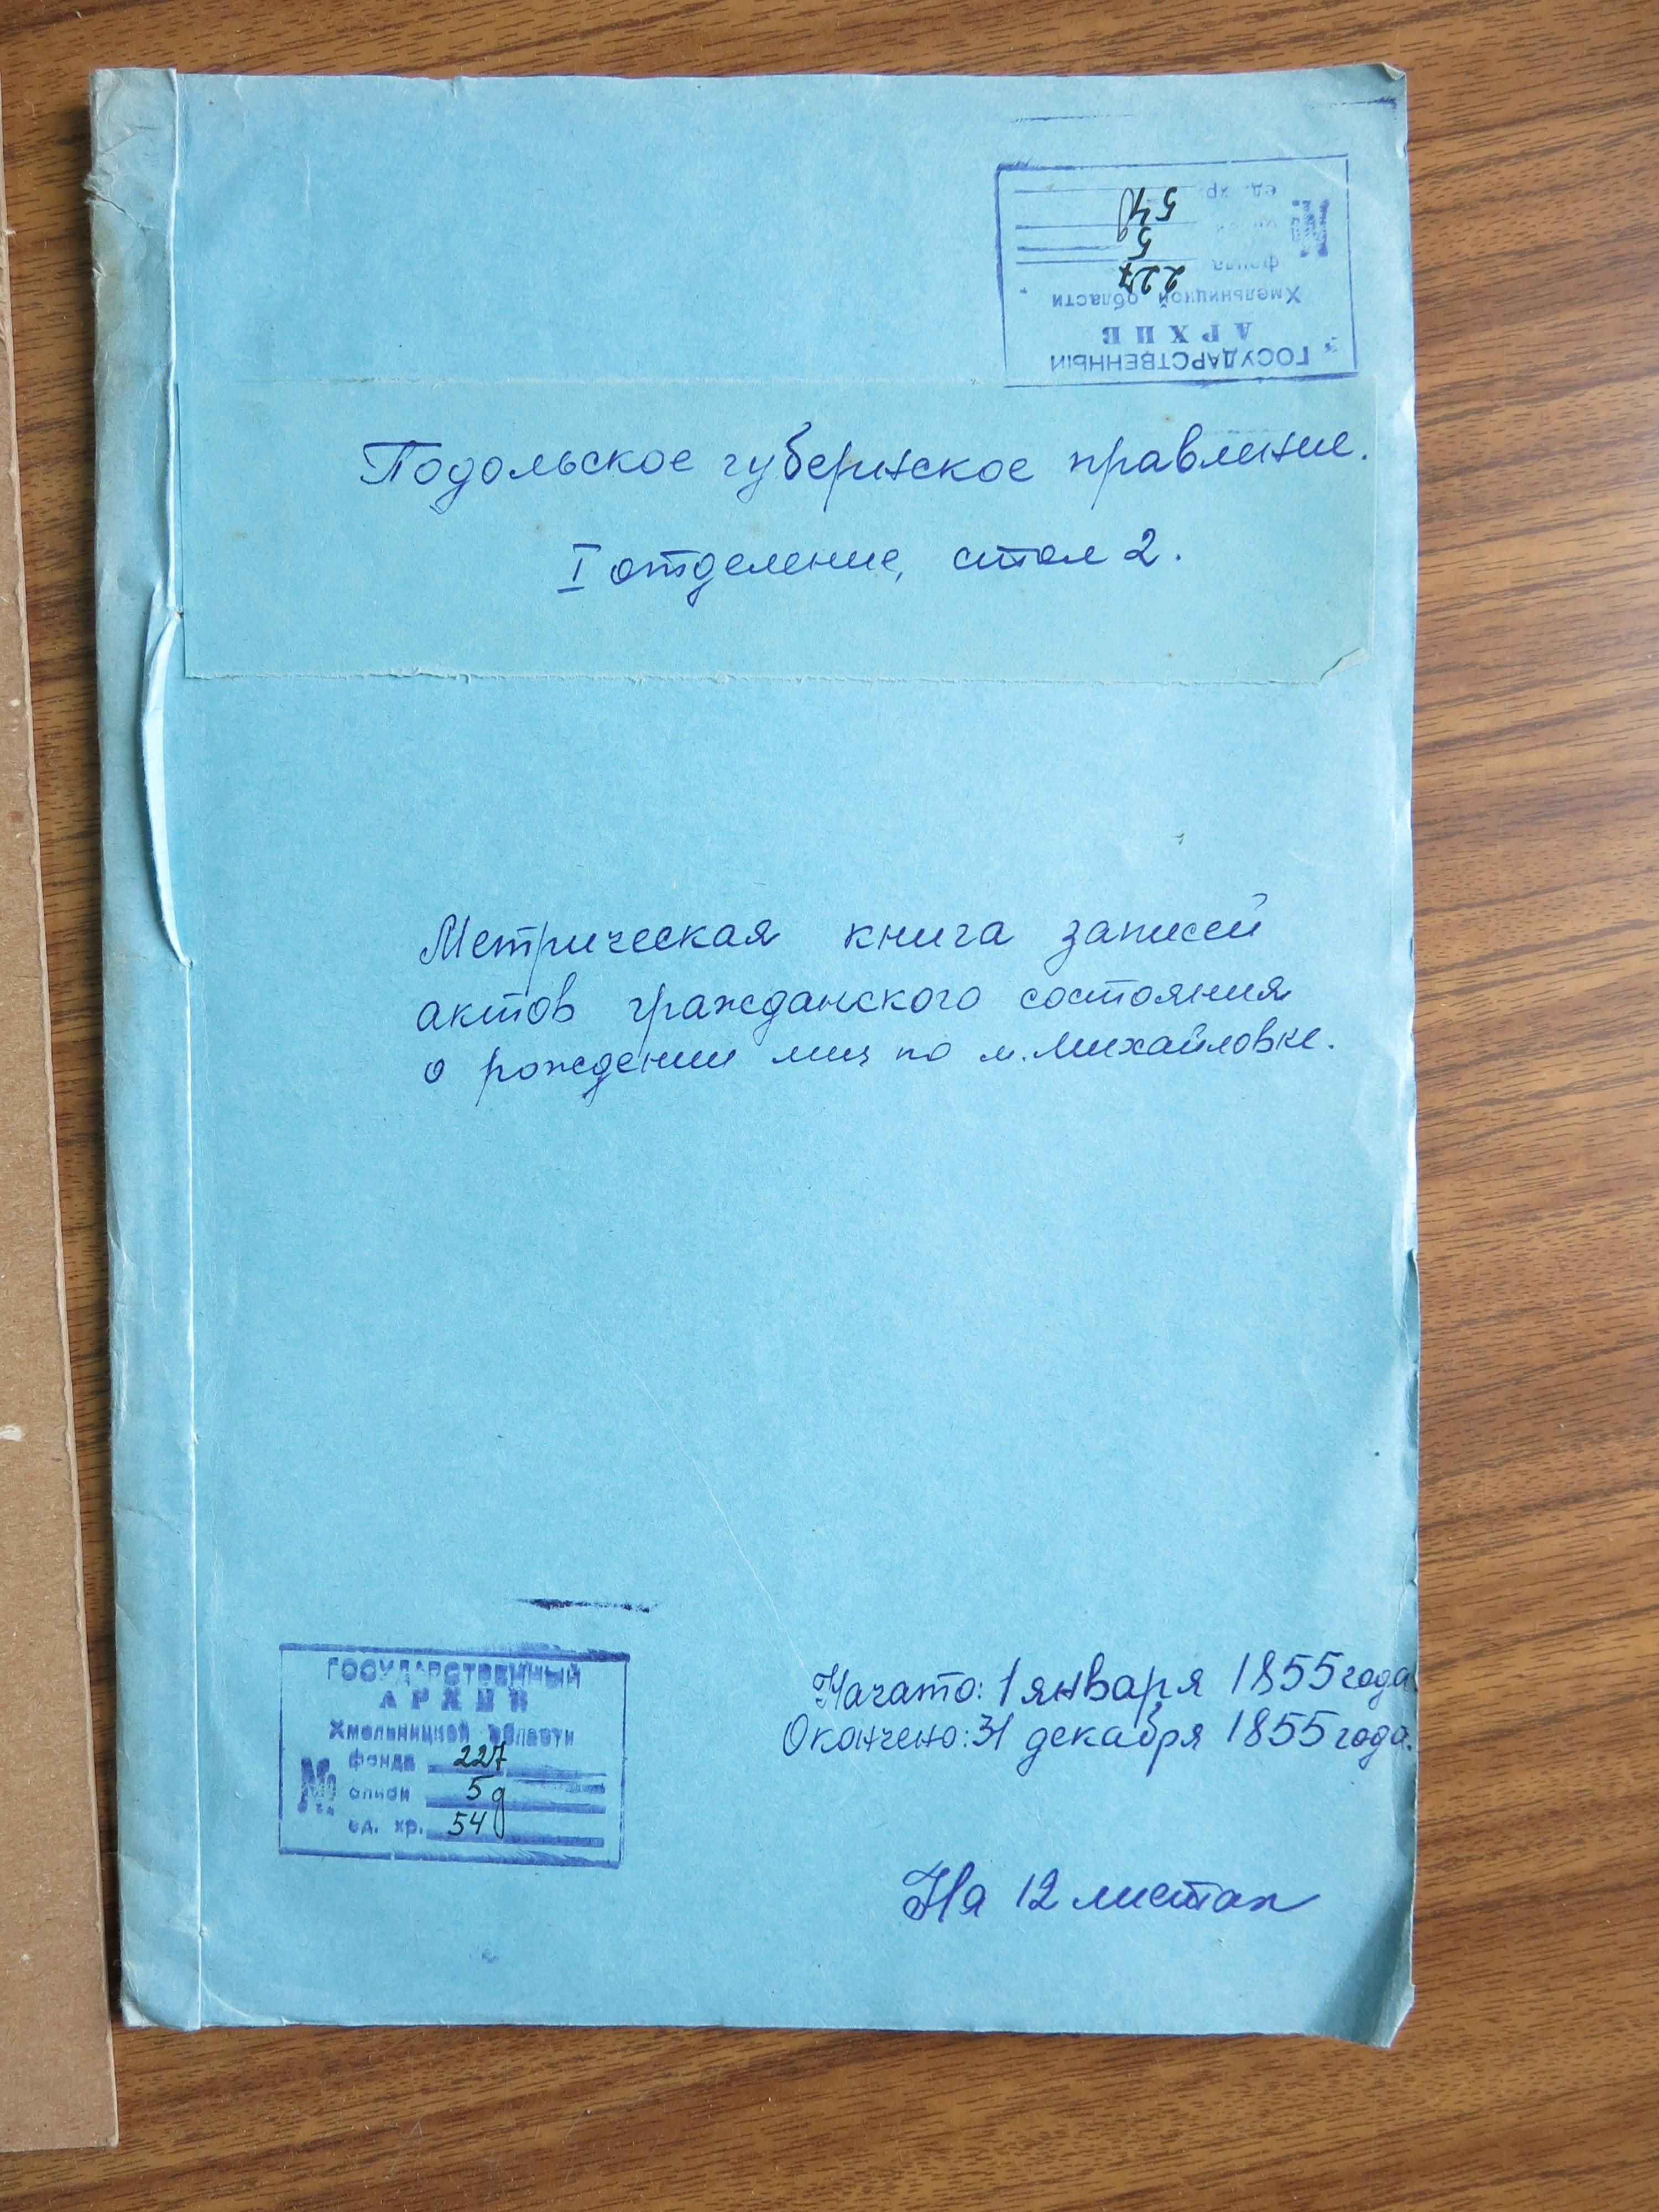 ГОСУДАРСТВЕННЫЙ
АРХИВ
Хмельницкой области
фонда 227
описи 5
№
ед. хр. 54
Подольское губернское правление.
I отделение, стол 2.
Метрическая книга записей
актов гражданского состояния
о рождении лиц по м. Михайловке.
Начато: 1 января 1855 года.
Окончено: 31 декабря 1855 года.
ГОСУДАРСТВЕННЫЙ
АРХИВ
Хмельницкой области
фонда 227
№ описи 5д
ед. хр. 54
На 12 листах